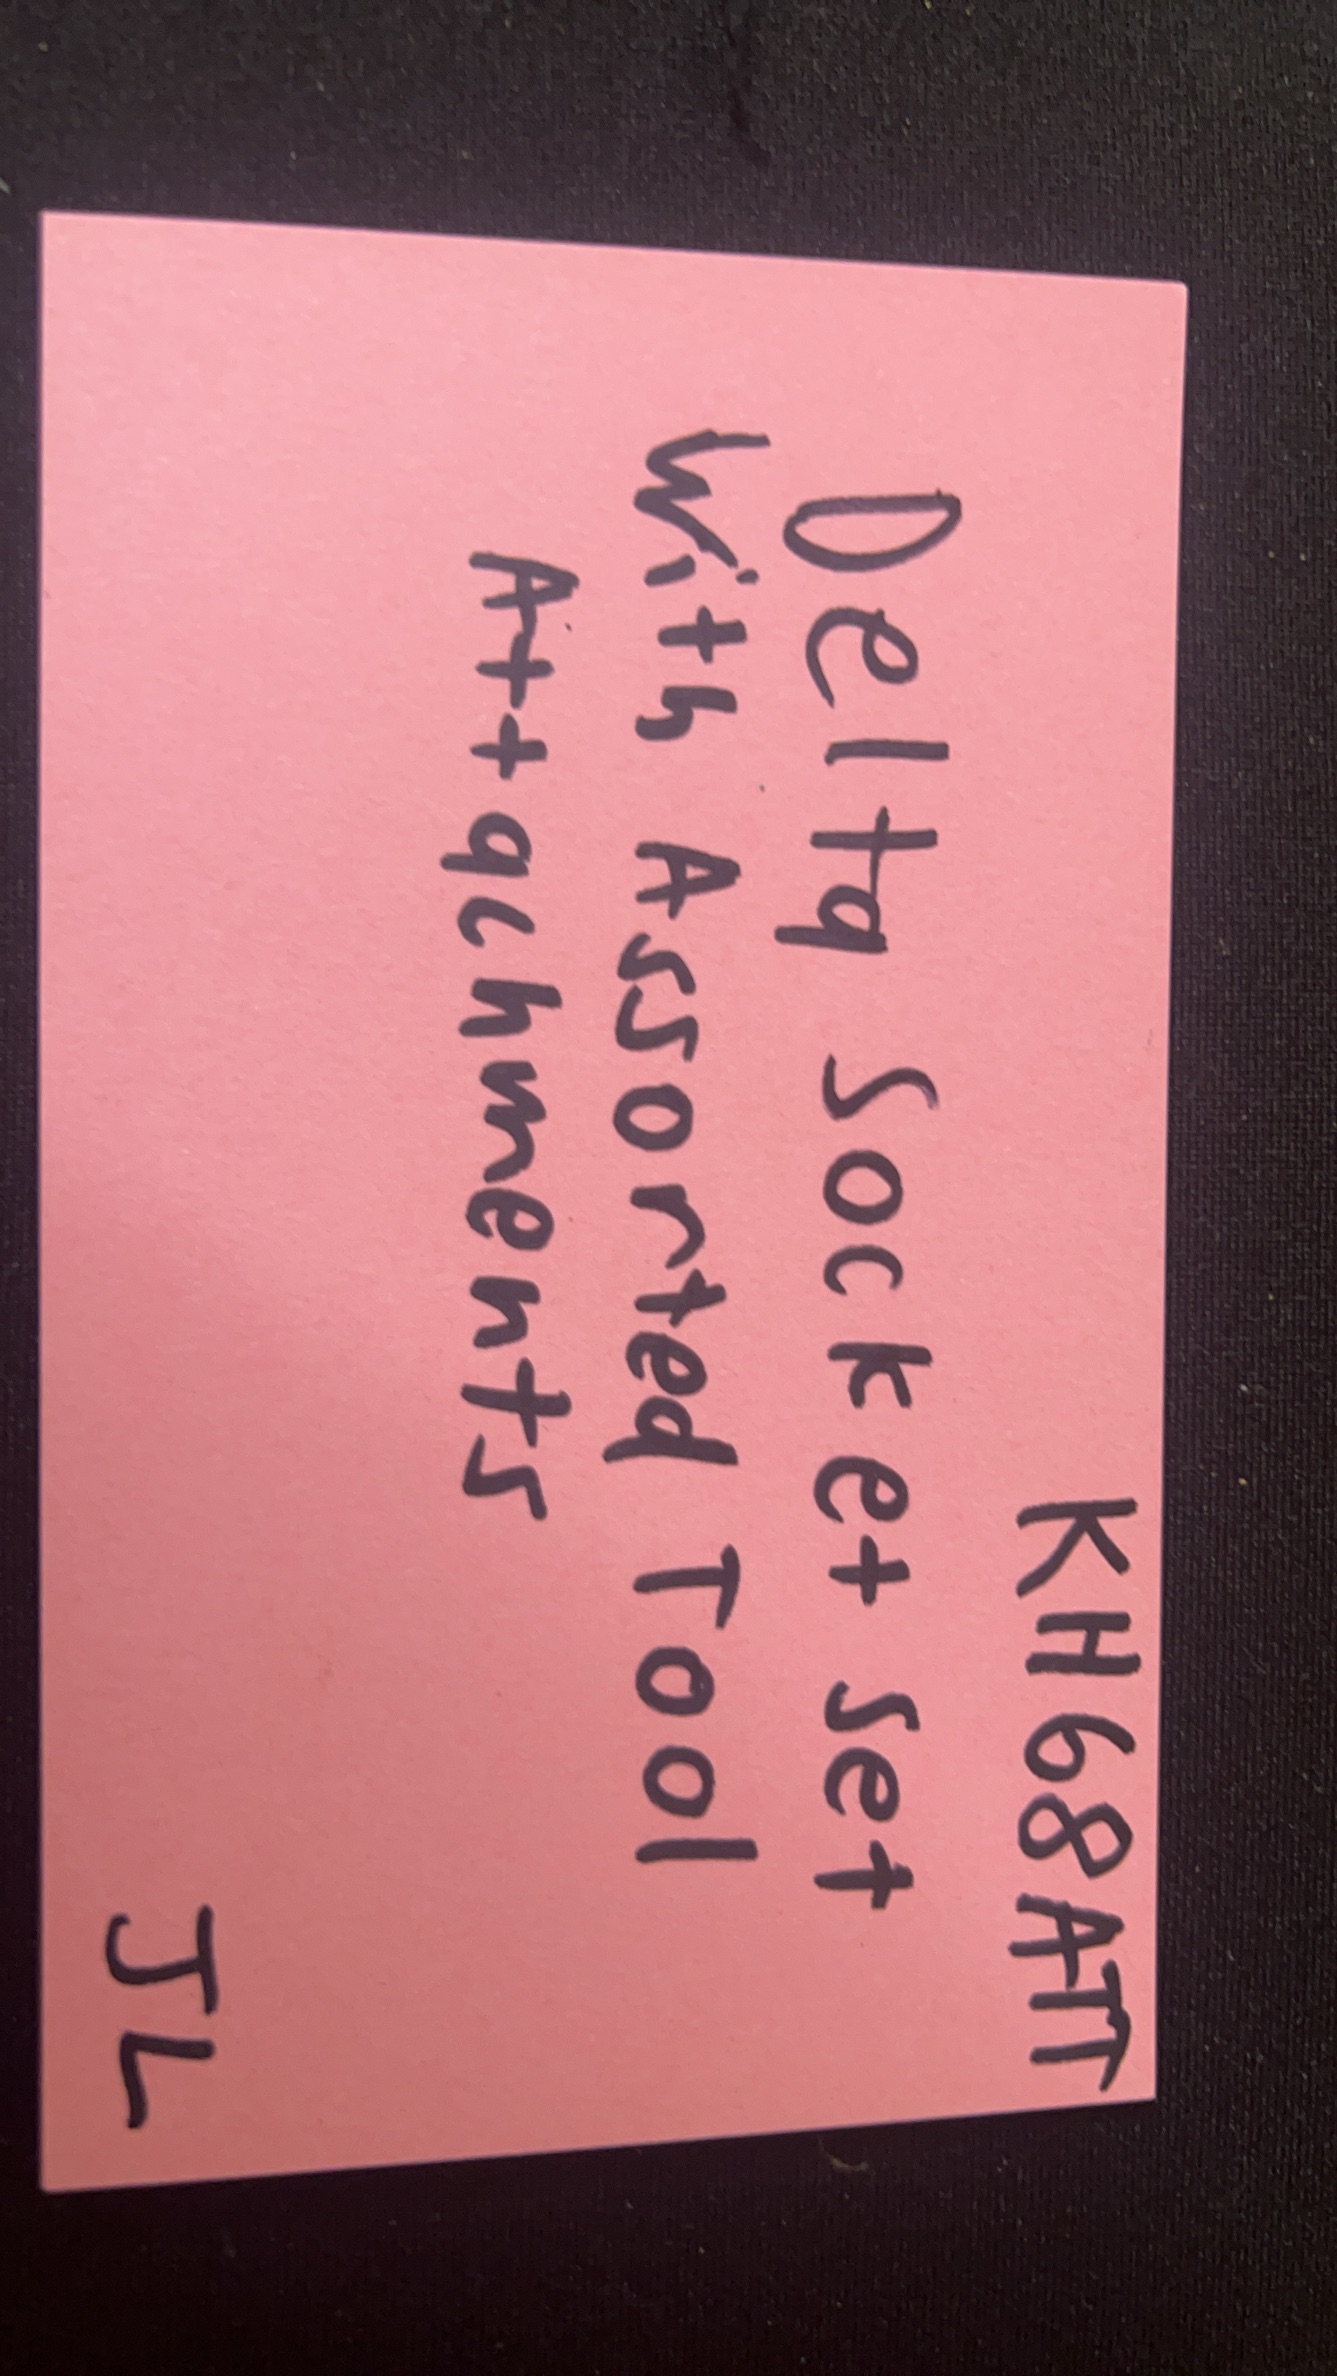 KH68ATT
Delta Socket Set
With Assorted Tool
Attachments
JL